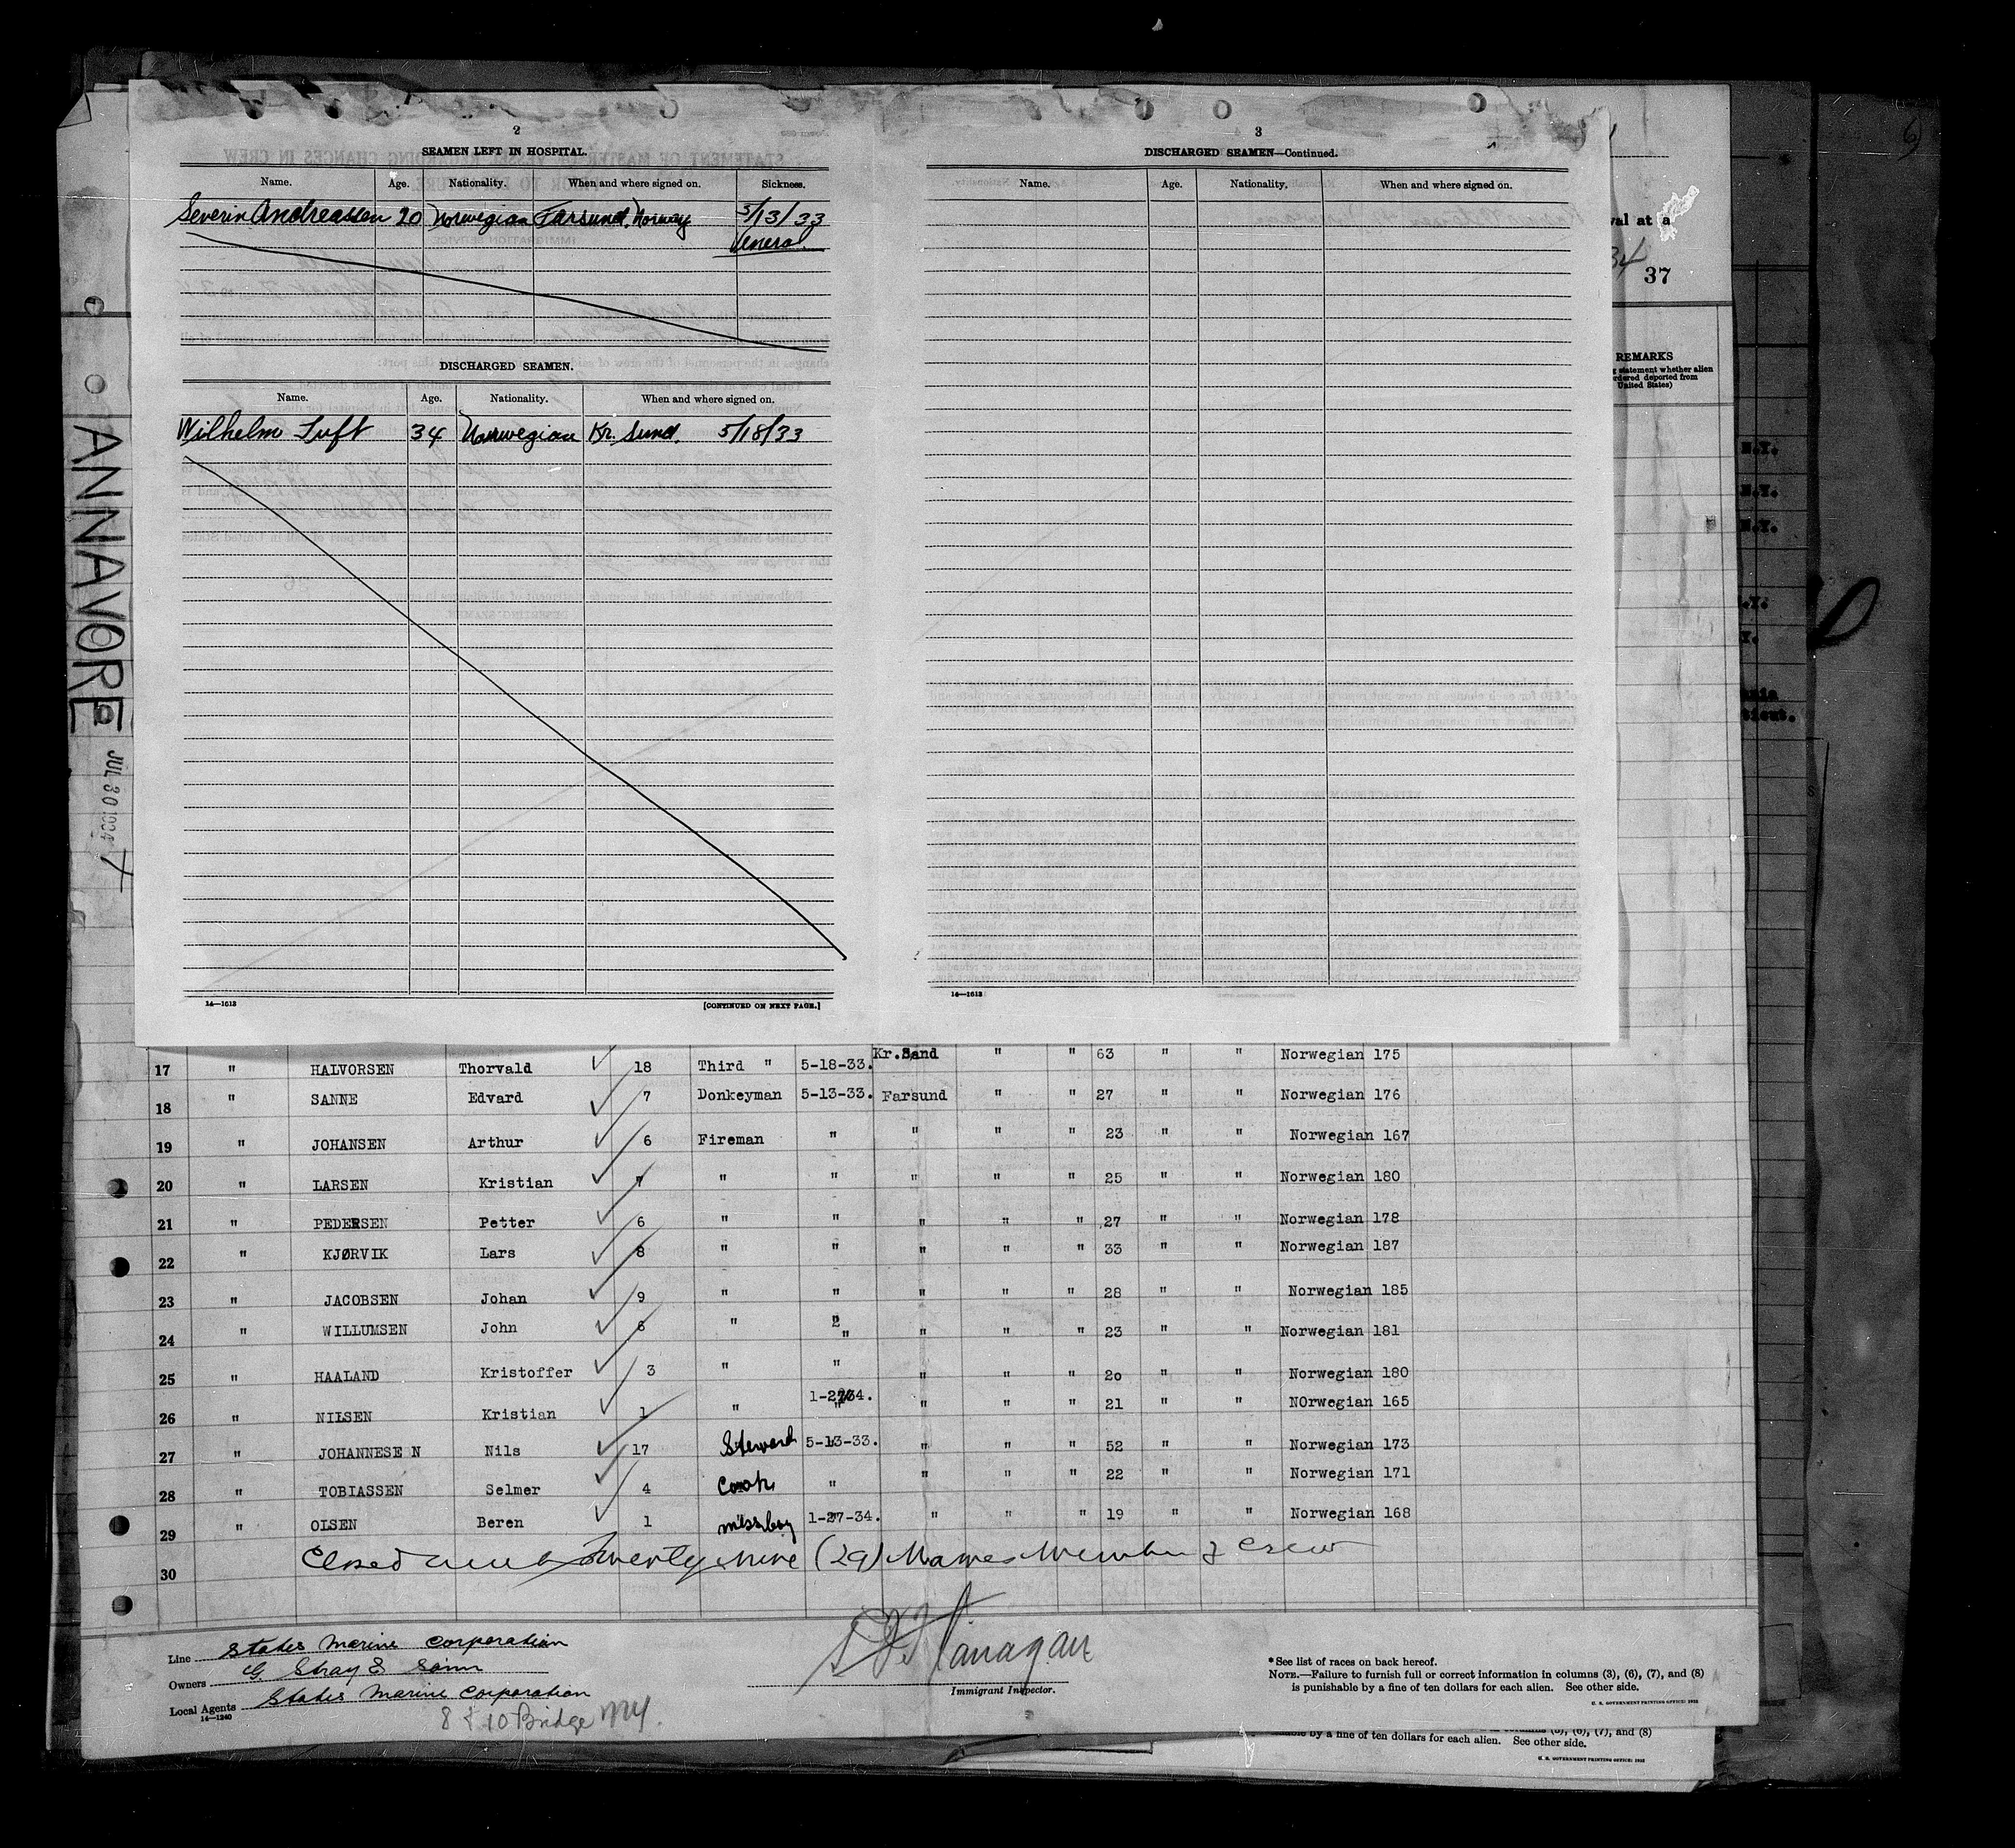 2
SEAMEN LEFT IN HOSPITAL.
Name. Age. Nationality. When and where signed on. Sickness.
Severin Andreassen 20 Norwegian Farsund, Norway 5/13/33
Veneral
DISCHARGED SEAMEN.
Name. Age. Nationality. When and where signed on.
Wilhelm Tuft 34 Norwegian Kr. Sund. 5/18/33
14—1613 [CONTINUED ON NEXT PAGE.]
3
DISCHARGED SEAMEN—Continued.
Name. Age. Nationality. When and where signed on.
14—1613
val at a
34 37
REMARKS
statement whether alien
rdered deported from
United States)
N.Y.
N.Y.
N.Y.
.Y.
Y.
ticut.
ANNAVORE
JUL 30 1934
17 " HALVORSEN Thorvald 18 Third " 5-18-33. Kr.Sand " " 63 " " Norwegian 175
18 " SANNE Edvard 7 Donkeyman 5-13-33. Farsund " " 27 " " Norwegian 176
19 " JOHANSEN Arthur 6 Fireman " " " " 23 " " Norwegian 167
20 " LARSEN Kristian 7 " " " " " 25 " " Norwegian 180
21 " PEDERSEN Petter 6 " " " " " 27 " " Norwegian 178
22 " KJØRVIK Lars 8 " " " " " 33 " " Norwegian 187
23 " JACOBSEN Johan 9 " " " " " 28 " " Norwegian 185
24 " WILLUMSEN John 6 " " " " " 23 " " Norwegian 181
25 " HAALAND Kristoffer 3 " " " " " 20 " " Norwegian 180
26 " NILSEN Kristian 1 " 1-27-34. " " " 21 " " NOrwegian 165
27 " JOHANNESE N Nils 17 Steward 5-13-33. " " " 52 " " Norwegian 173
28 " TOBIASSEN Selmer 4 Cook " " " " 22 " " Norwegian 171
29 " OLSEN Beren 1 messboy 1-27-34. " " " 19 " " Norwegian 168
30 Closed Twenty Nine (29) Names Member of Crew
Line States Marine Corporation
Owners G. Shay & Sonn
Local Agents States Marine Corporation
14—1240
8 & 10 Bridge NY.
Flanagan
Immigrant Inspector.
*See list of races on back hereof.
NOTE.—Failure to furnish full or correct information in columns (3), (6), (7), and (8)
is punishable by a fine of ten dollars for each alien. See other side.
U. S. GOVERNMENT PRINTING OFFICE: 1932
able by a fine of ten dollars for each alien. See other side.
U. S. GOVERNMENT PRINTING OFFICE: 1932